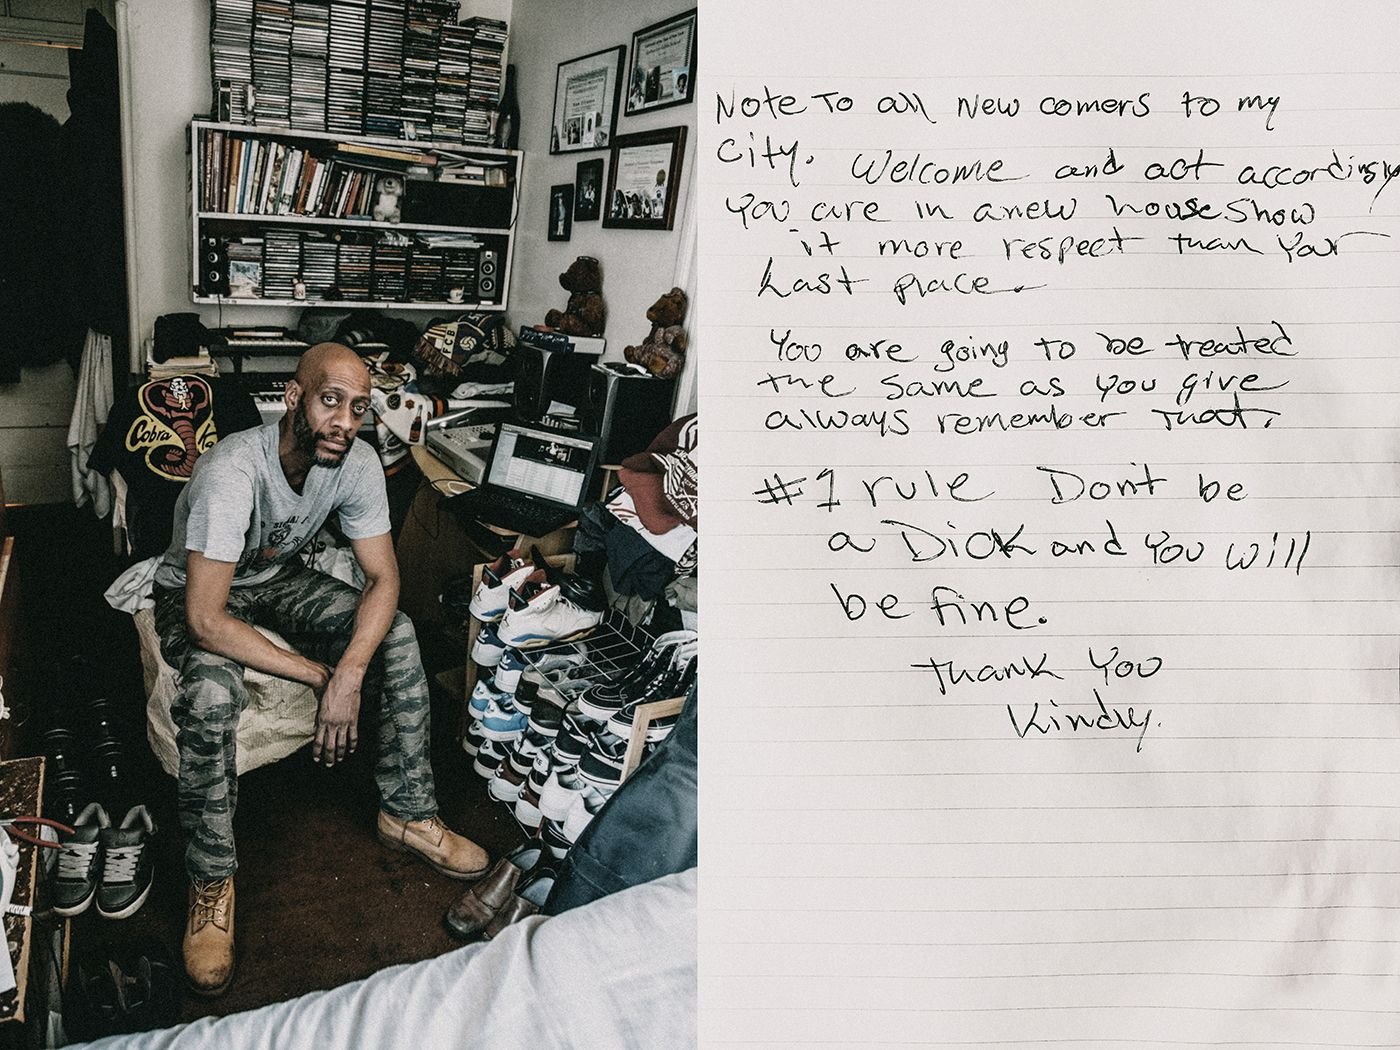 Cobra Ka
FCB
Note To all New comers to my
City. Welcome and act accordingly
You are in a new house show
it more respect than Your
Last place.
You are going to be treated
the same as you give
always remember that.
#1 rule Don't be
a Dick and You will
be fine.
Thank You
Kindly.